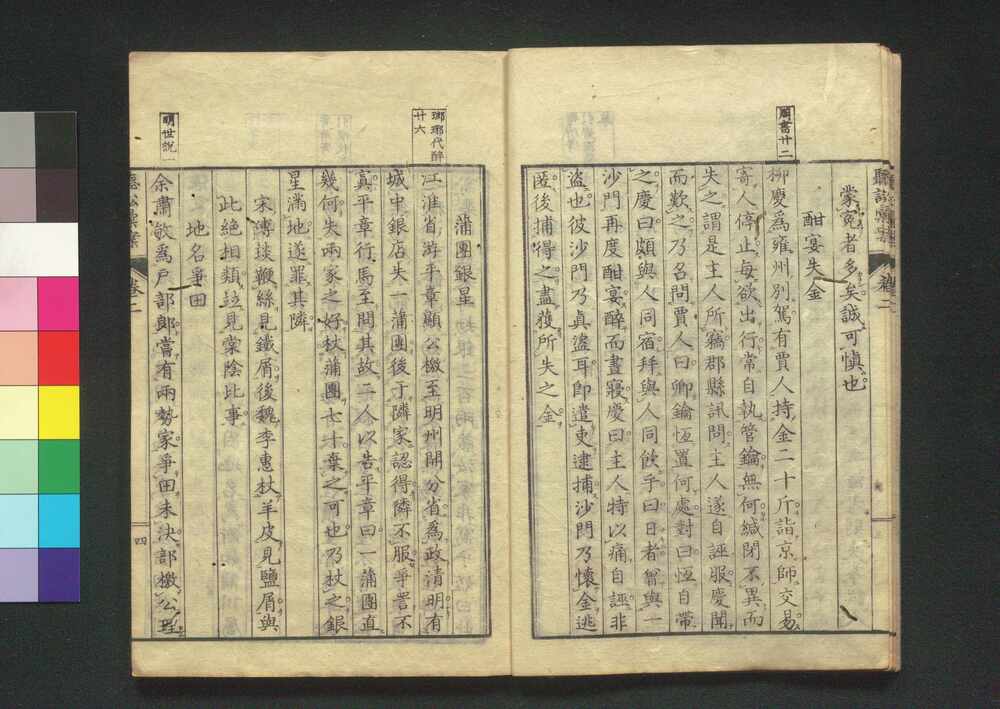 周書廿二
蒙寃者多矣誠可慎也
酣宴失金
柳慶爲雍州別駕有賈人持金二十斤詣京師交易
寄人停止每欲出行常自執管鑰無何緘閉不異而
失之謂是主人所竊郡縣訊問主人遂自誣服慶聞
而歎之乃召問賈人曰卿鑰恆置何處對曰恆自帶
之慶曰頗與人同宿拜與人同飮乎曰日者曾與一
沙門再度酣宴醉而晝寢慶曰主人特以痛自誣非
盜也彼沙門乃眞盜耳卽遣吏逮捕沙門乃懷金逃
匿後捕得之盡獲所失之金
瑯琊代醉
廿六
蒲團銀星
江淮省游平章顯公檄至明州開分省爲政清明有
城中銀店失一蒲團後于隣家認得隣不服爭詈不
眞平章行馬至問其故二人以告平章曰一蒲團直
幾何失兩家之好杖蒲團七十棄之可也乃杖之銀
星滿地遂罪其隣
宋傅琰鞭絲見鐵屑後魏李惠杖羊皮見鹽屑與
此絶相類竝見棠陰比事
明世說
地名爭田
余肅敏爲戶部郞嘗有兩勢家爭田未決部檄公理
卷二
四